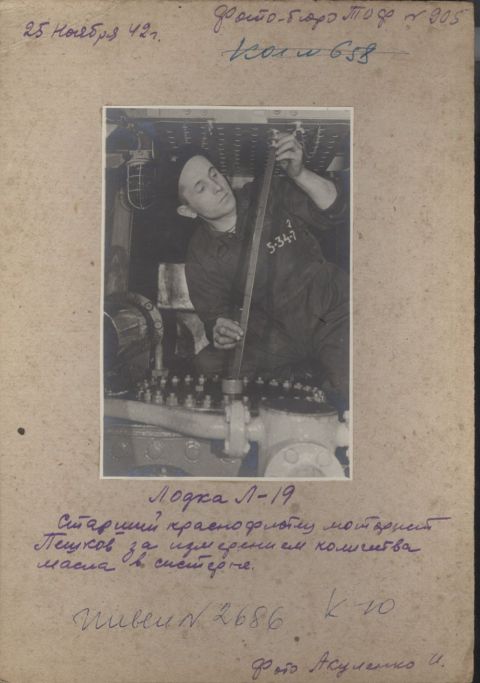 25 Ноября 42г.
Фото-бюро ТОФ № 905
Кол № 658
5-34-7
2
Лодка Л-19
Старший краснофлотец моторист
Пешков за измерением количества
масла в систерне.
№ 2686 К-10
Фото Акуленко И.